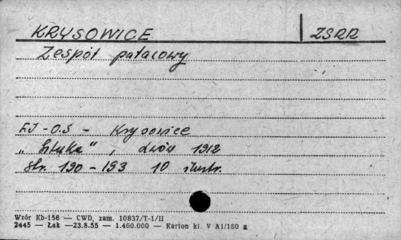 KRYSOWICE ZSRR
Zespół pałacowy
Krysowice
"Sztuka", Lwów 1912
str. 190-193 10 ilustr.
Wzór Kb-156 — CWD, zam. 10837/T-1/II
2445 — Łak —23.8.55 — 1.460.000 — Karton kl. V A1/160 g